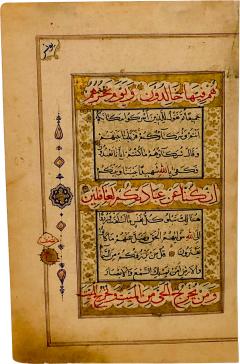 هم فيها خالدون ويوم نحشرهم
جميعا ثم نقول للذين اشركوا مكانكم
انتم وشركاؤكم فزيلنا بينهم
وقال شركاؤهم ما كنتم ايانا تعبدون
فكفى بالله شهيدا بيننا وبينكم
ان كنا عن عبادتكم لغافلين
هنالك تبلوا كل نفس ما اسلفت وردوا الى
الله موليهم الحق وضل عنهم ما كانوا
يفترون قل من يرزقكم من السماء
والارض امن يملك السمع والابصار
ومن يخرج الحي من الميت ويخرج الميت